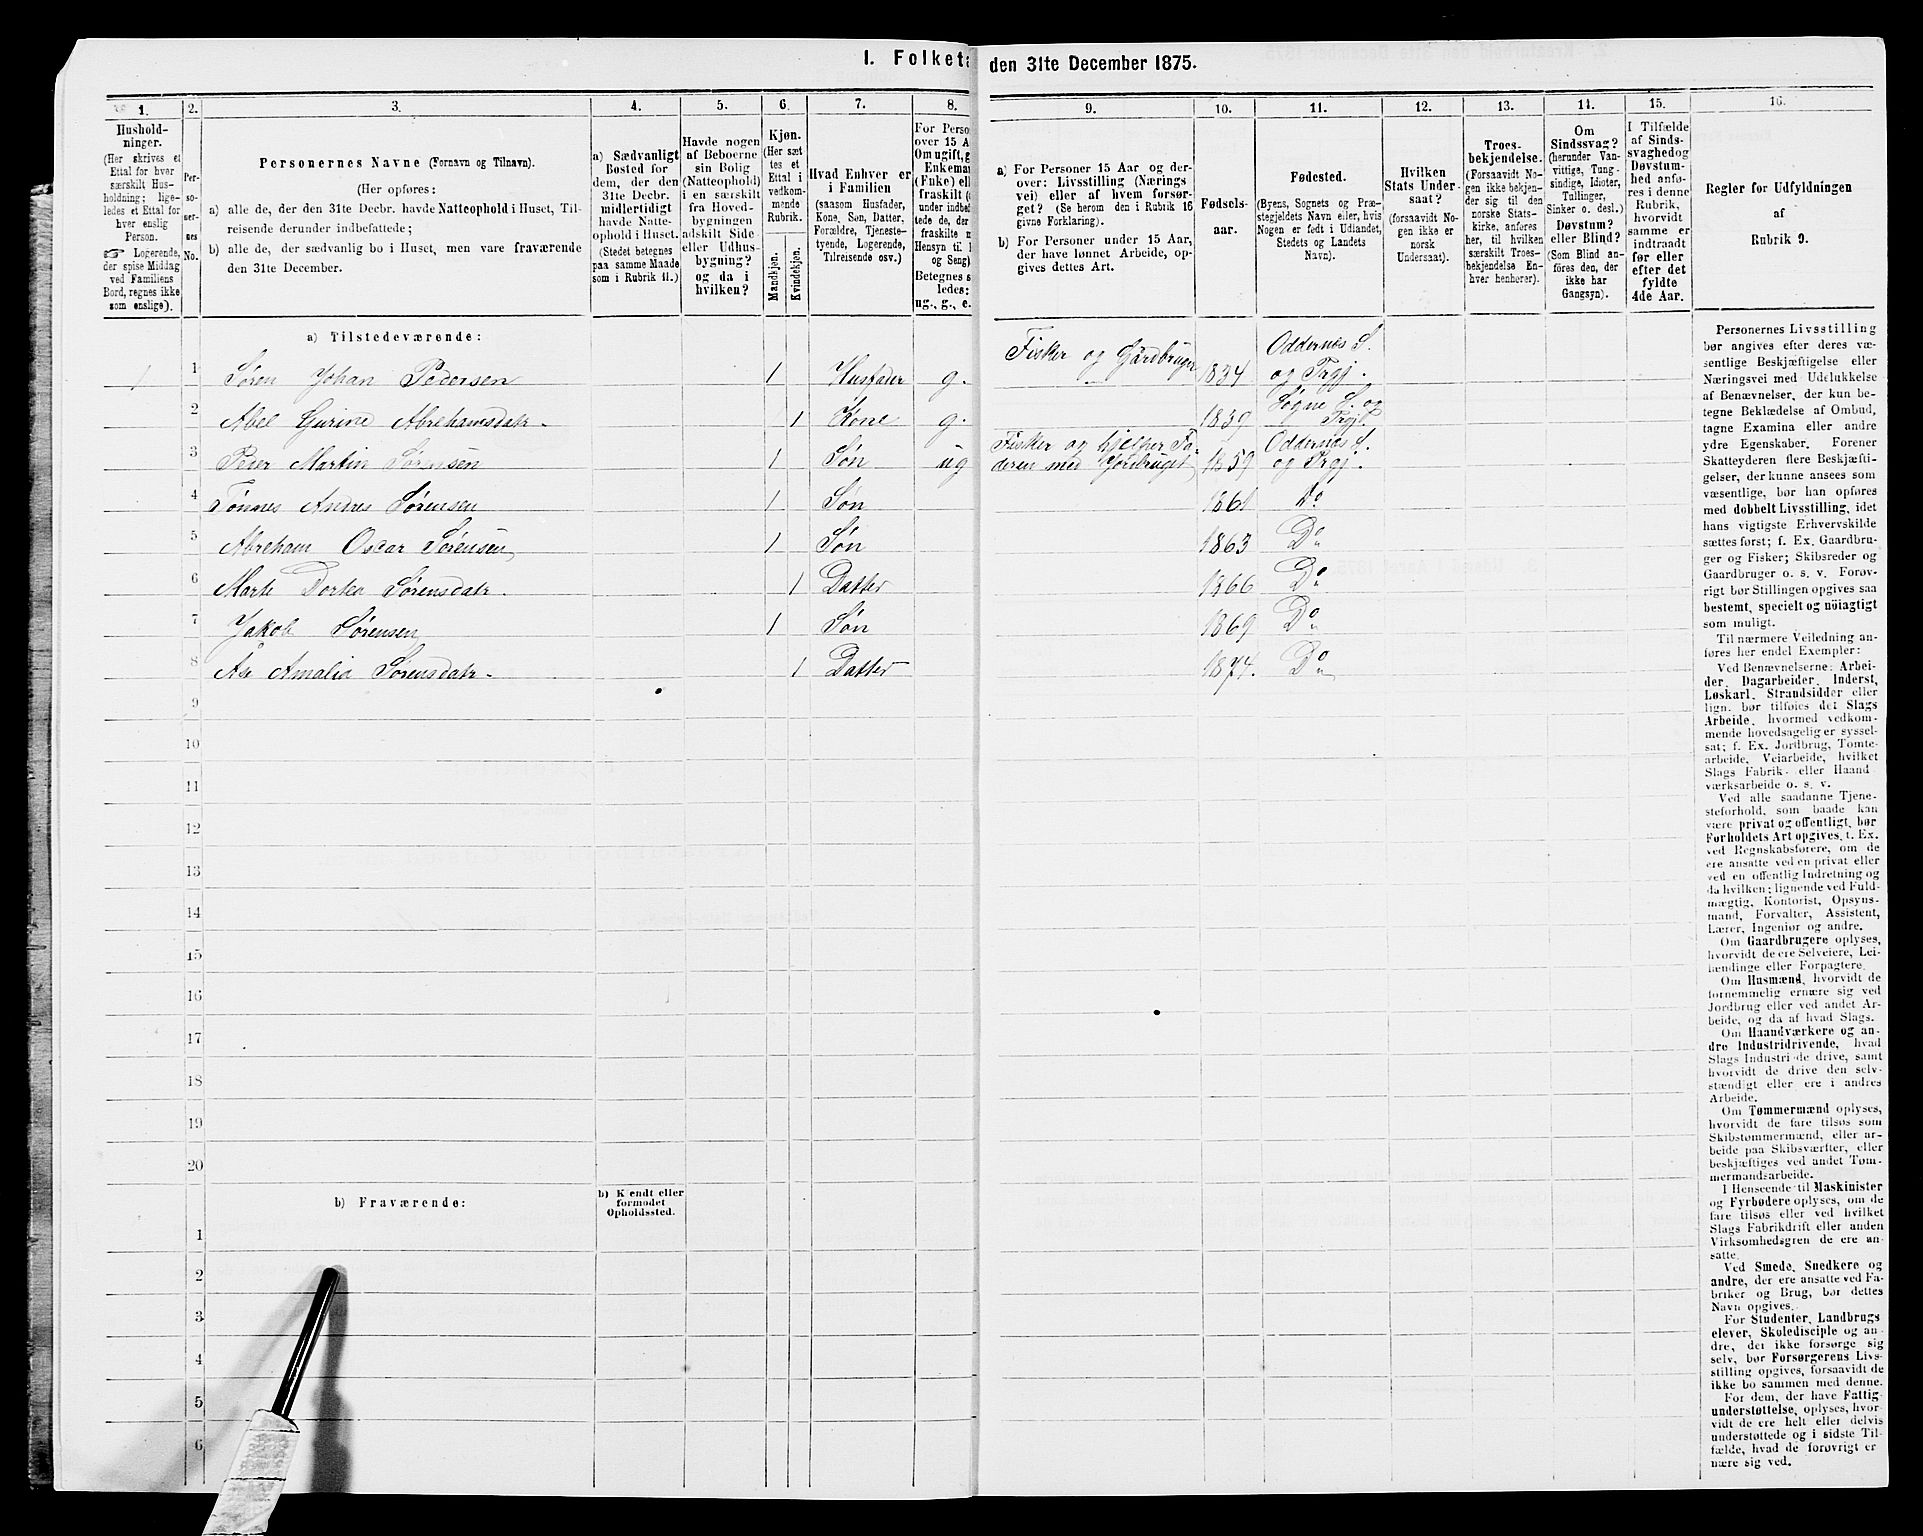 I. Folketæ
den 31te December 1875.
1.
Hushold-
ninger.
(Her skrives et
Ettal for hver
særskilt Hus-
holdning; lige-
ledes et Ettal for
hver enslig
Person.
☞ Logerende,
der spise Middag
ved Familiens
Bord, regnes ikke
som enslige).
2.
Per-
so-
ner-
nes
No.
3.
Personernes Navne (Fornavn og Tilnavn).
(Her opføres:
a) alle de, der den 31te Decbr. havde Natteophold i Huset, Til-
reisende derunder indbefattede;
b) alle de, der sædvanlig bo i Huset, men vare fraværende
den 31te December.
4.
a) Sædvanligt
Bosted for
dem, der den
31te Decbr.
midlertidigt
havde Natte-
ophold i Huset.
(Stedet betegnes
paa samme Maade
som i Rubrik 11.)
5.
Havde nogen
af Beboerne
sin Bolig
(Natteophold)
i en særskilt
fra Hoved-
bygningen
adskilt Side
eller Udhus-
bygning?
og da i
hvilken?
6.
Kjøn.
(Her sæt
tes et
Ettal i
vedkom-
mende
Rubrik.
Mandkjøn.
Kvindekjøn.
7.
Hvad Enhver er
i Familien
(saasom Husfader,
Kone, Søn, Datter,
Forældre, Tjeneste-
tyende, Logerende,
Tilreisende osv.)
8.
For Perso
over 15 A
Om ugift, g
Enkema
(Enke) ell
fraskilt (
under indbef
tede de, der
fraskilte m
Hensyn til
og Seng)
Betegnes s
ledes:
ug., g., e.
9.
a) For Personer 15 Aar og der-
over: Livsstilling (Nærings
vei) eller af hvem forsør-
get? (Se herom den i Rubrik 16
givne Forklaring).
b) For Personer under 15 Aar,
der have lønnet Arbeide, op-
gives dettes Art.
10.
Fødsels-
aar.
11.
Fødested.
(Byens, Sognets og Præ-
stegjeldets Navn eller, hvis
Nogen er født i Udlandet,
Stedets og Landets
Navn).
12.
Hvilken
Stats Under-
saat?
(forsaavidt No-
gen ikke er
norsk
Undersaat).
13.
Troes-
bekjendelse.
(Forsaavidt No-
gen ikke bekjen-
der sig til den
norske Stats-
kirke, anføres
her, til hvilken
særskilt Troes-
bekjendelse En-
hver henhører).
14.
Om
Sindssvag?
(herunder Van-
vittige, Tung-
sindige, Idioter,
Tullinger,
Sinker o. desl.)
Døvstum?
eller Blind?
(Som Blind an-
føres den, der
ikke har
Gangsyn).
15.
I Tilfælde
af Sinds-
svaghed og
Døvstum-
hed anfø-
res i denne
Rubrik,
hvorvidt
samme er
indtraadt
før eller
efter det
fyldte
4de Aar.
16.
Regler for Udfyldningen
af
Rubrik 9.
a) Tilstedeværende:
1 1 Søren Johan Pedersen 1 Husfader g. Fisker og Gårdbruger 1834 Oddernes S. og Prgj.
2 Abel Gurine Abrehamsdatr. 1 Kone g. 1839 Søgne S. og Prgj.
3 Peder Martin Sørensen 1 Søn ug Fisker og hjelper Fa-
deren med Jordbruget 1859 Oddernes S. og Prgj.
4 Tønnes Andres Sørensen 1 Søn 1861 Do
5 Abreham Oscar Sørensen 1 Søn 1863 Do
6 Marte Dortea Sørensdatr. 1 Datter 1866 Do
7 Jakob Sørensen 1 Søn 1869 Do
8 Ase Amalia Sørensdatr. 1 Datter 1874. Do
9
10
11
12
13
14
15
16
17
18
19
20
b) Fraværende:
b) Kjendt eller
formodet
Opholdssted.
1
2
3
4
5
6
Personernes Livsstilling
bør angives efter deres væ-
sentlige Beskjæftigelse eller
Næringsvei med Udelukkelse
af Benævnelser, der kun be-
tegne Beklædelse af Ombud,
tagne Examina eller andre
ydre Egenskaber. Forener
Skatteyderen flere Beskjæfti-
gelser, der kunne ansees som
væsentlige, bør han opføres
med dobbelt Livsstilling, idet
hans vigtigste Erhvervskilde
sættes først; f. Ex. Gaardbru-
ger og Fisker; Skibsreder og
Gaardbruger o. s. v. Forøv-
rigt bør Stillingen opgives saa
bestemt, specielt og nöiagtigt
som muligt.
Til nærmere Veiledning an-
føres her endel Exempler:
Ved Benævnelserne: Arbei-
der, Dagarbeider, Inderst,
Løskarl, Strandsidder eller
lign. bør tilføies det Slags
Arbeide, hvormed vedkom-
mende hovedsagelig er syssel-
sat; f. Ex. Jordbrug, Tomte-
arbeide, Veiarbeide, hvilket
Slags Fabrik- eller Haand
værksarbeide o. s. v.
Ved alle saadanne Tjene-
steforhold, som baade kan
være privat og offentligt, bør
Forholdets Art opgives, f. Ex.
ved Regnskabsførere, om de
ere ansatte ved en privat eller
ved en offentlig Indretning og
da hvilken; lignende ved Fuld-
mægtig, Kontorist, Opsyns-
mand, Forvalter, Assistent,
Lærer, Ingeniør og andre.
Om Gaardbrugere oplyses,
hvorvidt de ere Selveiere, Lei-
lændinge eller Forpagtere.
Om Husmænd, hvorvidt de
fornemmelig ernære sig ved
Jordbrug eller ved andet Ar-
beide, og da af hvad Slags.
Om Haandværkere og an-
dre Industridrivende, hvad
Slags Industri de drive, samt
hvorvidt de drive den selv-
stændigt eller ere i andres
Arbeide.
Om Tømmermænd oplyses,
hvorvidt de fare tilsøs som
Skibstømmermænd, eller ar-
beide paa Skibsværfter, eller
beskjæftiges ved andet Tøm-
mermandsarbeide.
I Henseende til Maskinister
og Fyrbødere oplyses, om de
fare tilsøs eller ved hvilket
Slags Fabrikdrift eller anden
Virksomhedsgren de ere an-
satte.
Ved Smede, Snedkere og
andre, der ere ansatte ved Fa-
briker og Brug, bør dettes
Navn opgives.
For Studenter, Landbrugs
elever, Skoledisciple og an-
dre, der ikke forsørge sig
selv, bør Forsørgerens Livs-
stilling opgives, forsaavidt de
ikke bo sammen med denne.
For dem, der have Fattig-
understøttelse, oplyses, hvor-
vidt de ere helt eller delvis
understøttede og i sidste Til-
fælde, hvad de forøvrigt er
nære sig ved.